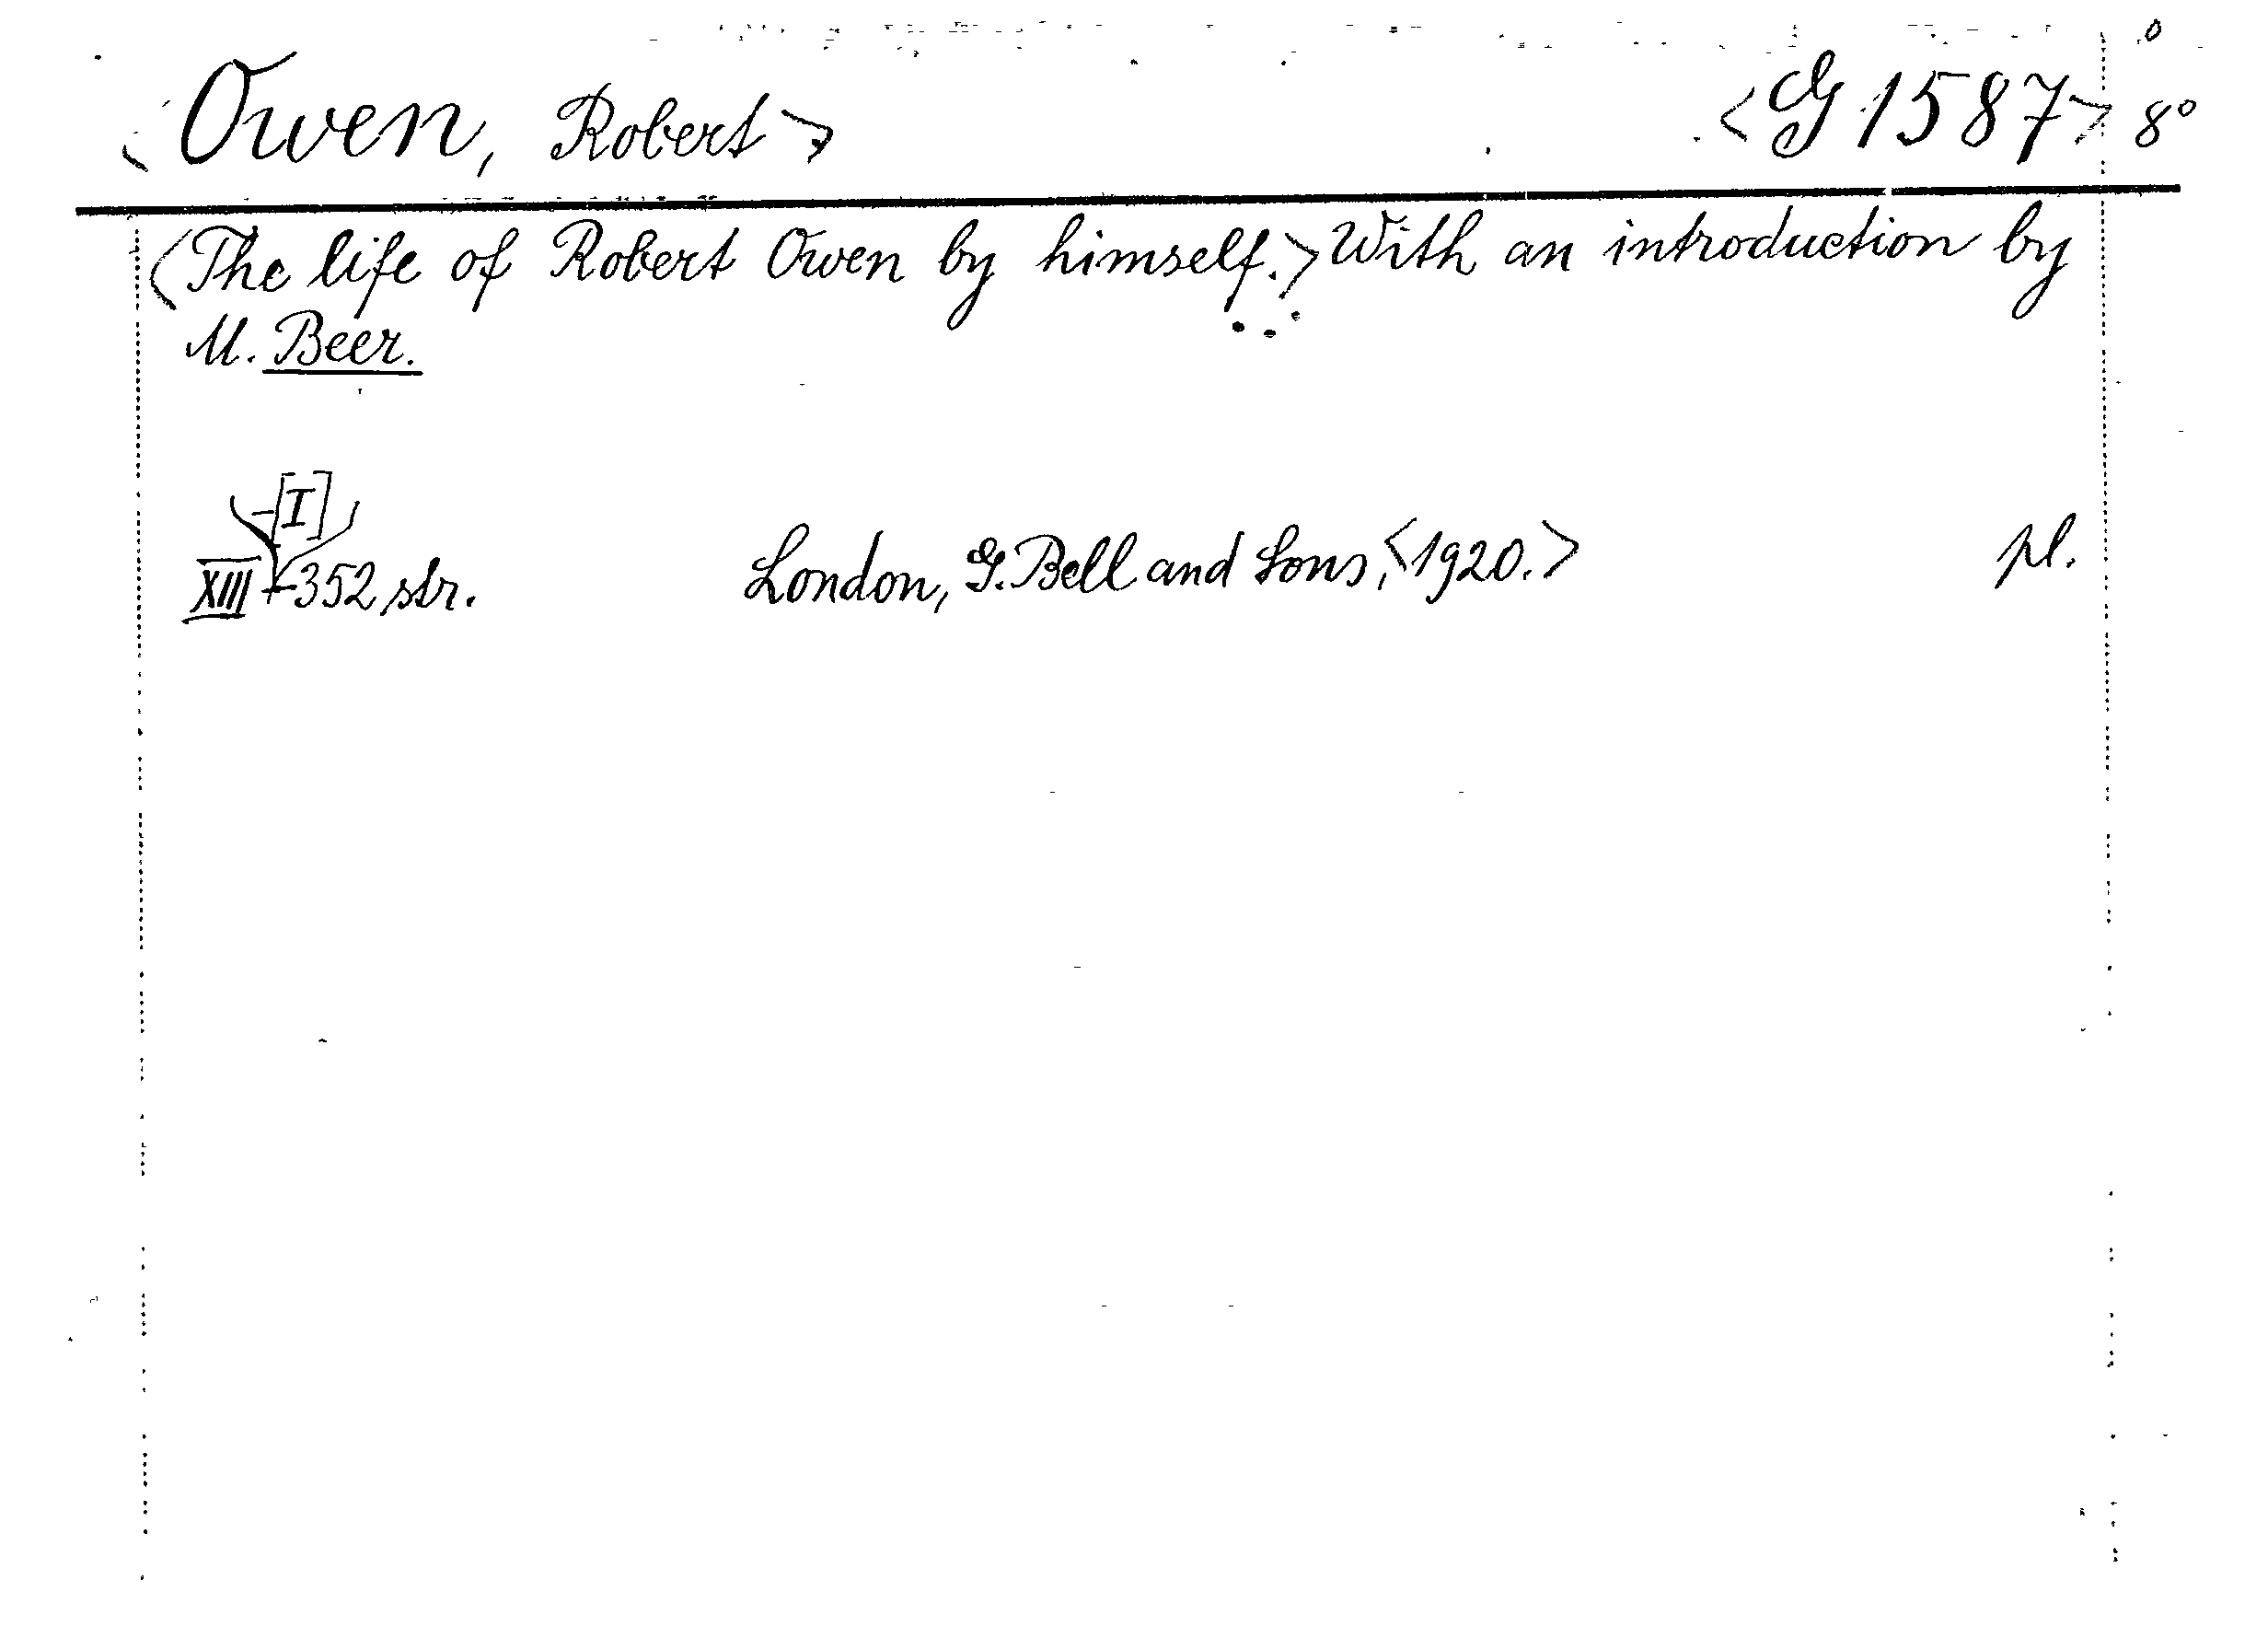 <Owen, Robert> <G 1587> 8°
<The life of Robert Owen by himself.> With an introduction by
M. Beer.
-[I]
XIII + 352 str. London, G. Bell and Sons, <1920.> pl.